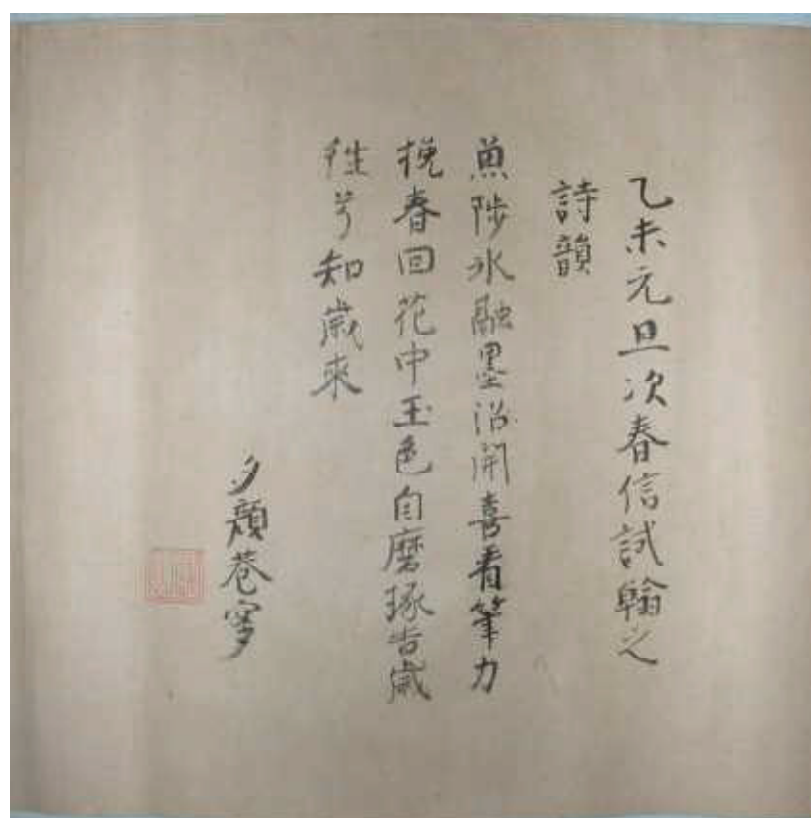 乙未元旦次春信試翰之
詩韻
魚陟氷融墨沼開喜看筆力
挽春回花中玉色自磨琢告歳
徃兮知歳來
夕顔巷